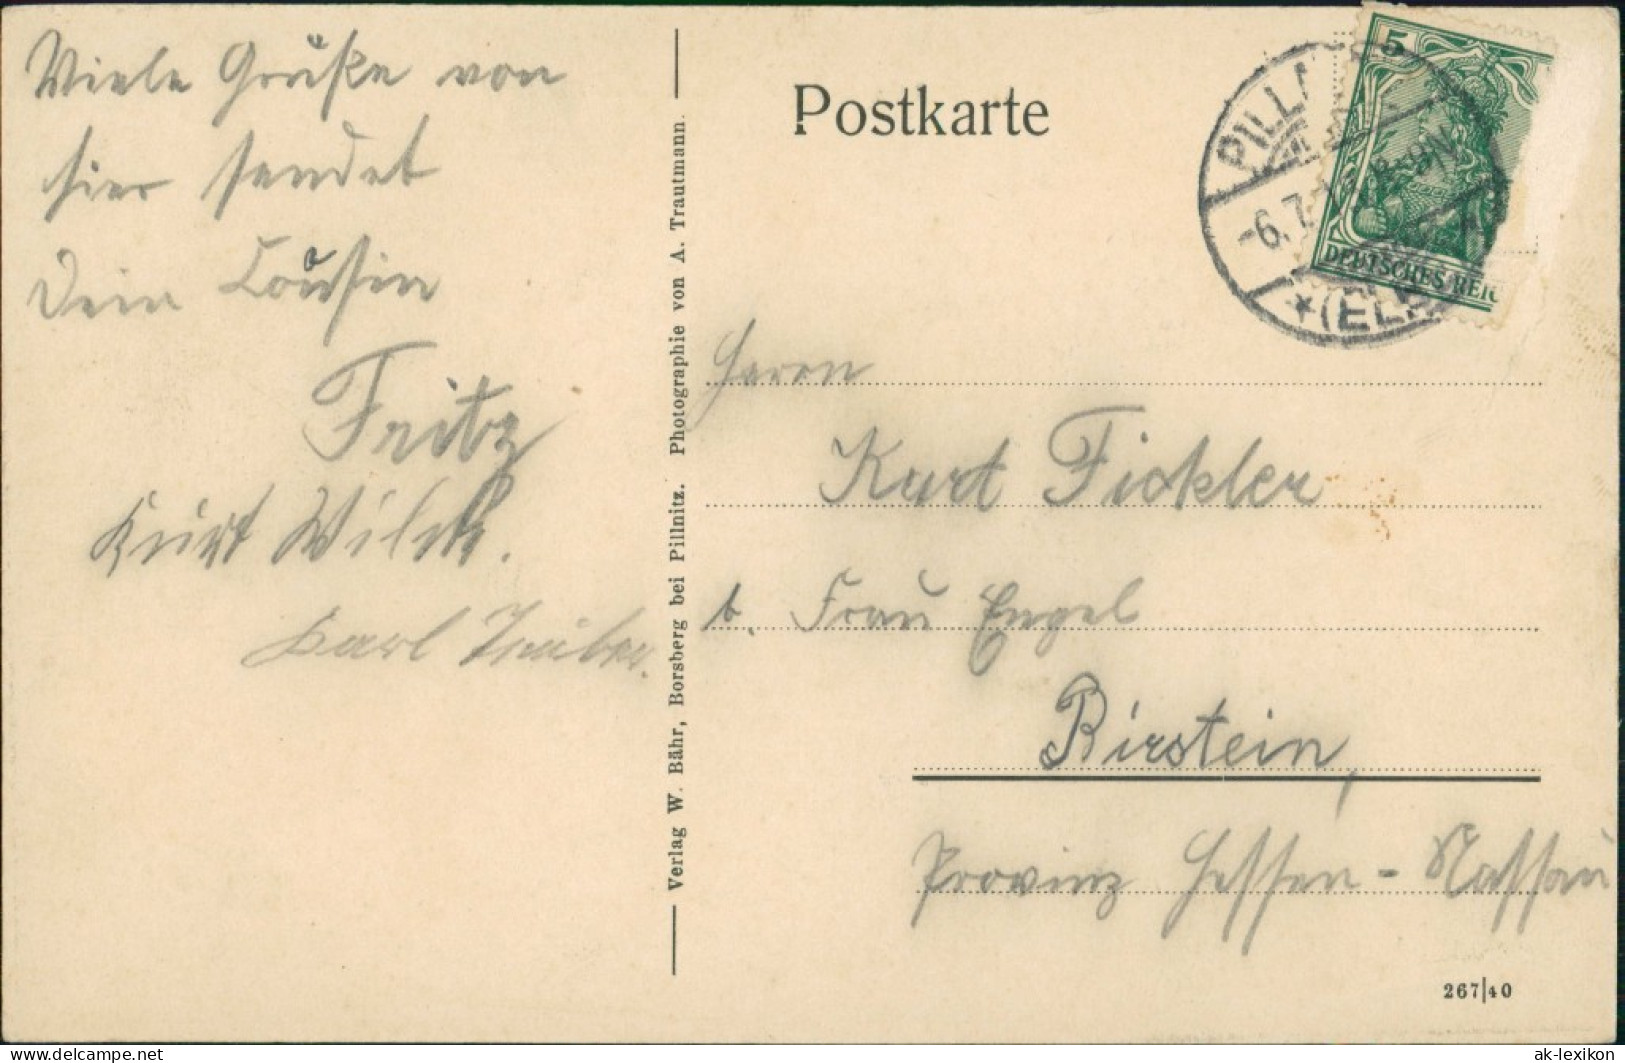 Viele Grüße von
hier sendet
Dein Cousin
Fritz
Kurt Wilck.
Karl
Verlag W. Bähr, Borsberg bei Pillnitz. Photographie von A. Trautmann.
Postkarte
5
DEUTSCHES REIC
PILLN
-6.7.
*(EL
Herrn
Kurt Fickler
b. Frau Engel
Birstein,
Provinz Hessen-Nassau
267|40
delcampe.net
ak-lexikon